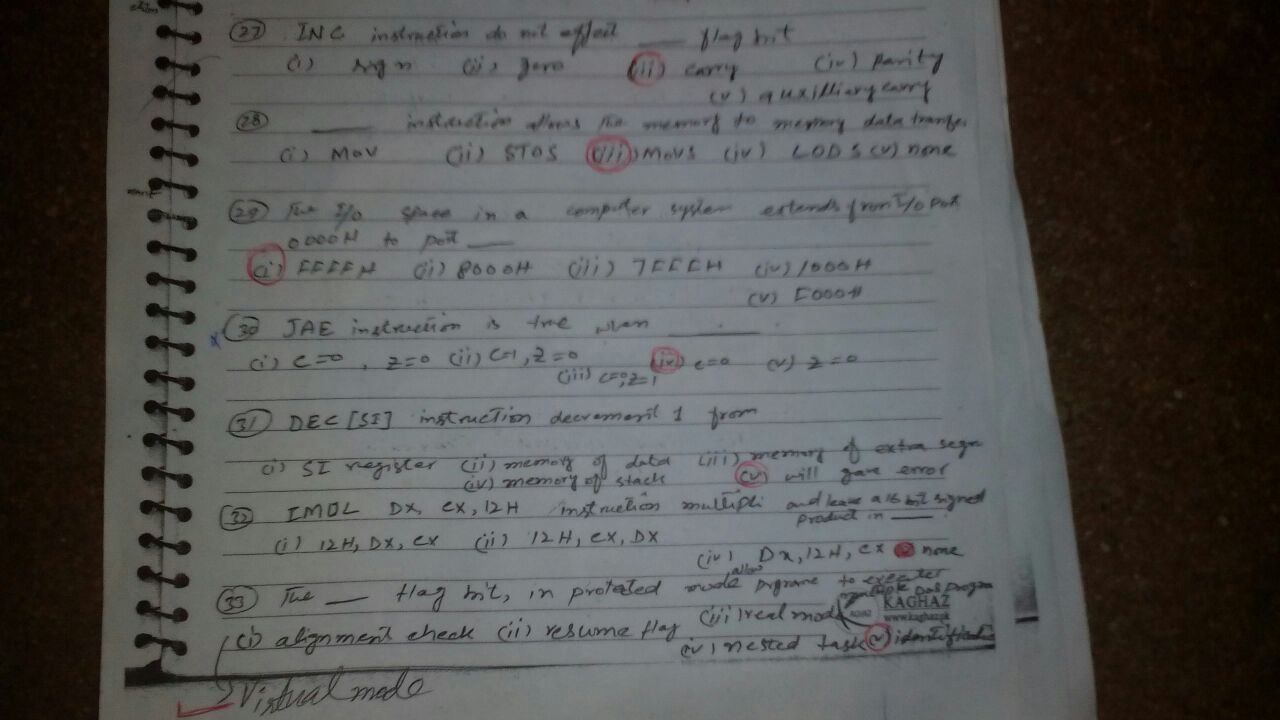 (27) INC instruction do not effect ___ flag bit
(i) sign (ii) zero (iii) carry (iv) parity
(v) auxilliary carry
(28) ___ instruction allows the memory to memory data tranfer
(i) MOV (ii) STOS (iii) MOVS (iv) LODS (v) none
(29) The I/O space in a computer system extends from I/O port
0000H to port ___
(i) FFFFH (ii) 8000H (iii) 7FFFH (iv) 1000H
(v) F000H
x (30) JAE instruction is true when ___.
(i) C=0, Z=0 (ii) C=1, Z=0 (iv) C=0 (v) Z=0
(iii) C=0, Z=1
(31) DEC [SI] instruction decrement 1 from
(i) SI register (ii) memory of data (iii) memory of extra segm
(iv) memory of stack (v) will gave error
(32) IMUL DX, CX, 12H instruction multipli and leave a 16 bit signed
product in ___.
(i) 12H, DX, CX (ii) 12H, CX, DX
(iv) DX, 12H, CX none
(33) The ___ flag bit, in protected mode allow programe to executer
multiple Dos progra
(i) alignment check (ii) resume flag (iii) real mod
(iv) nested task (v) identificati
KAGHAZ
www.kaghaz.pk
Virtual mode